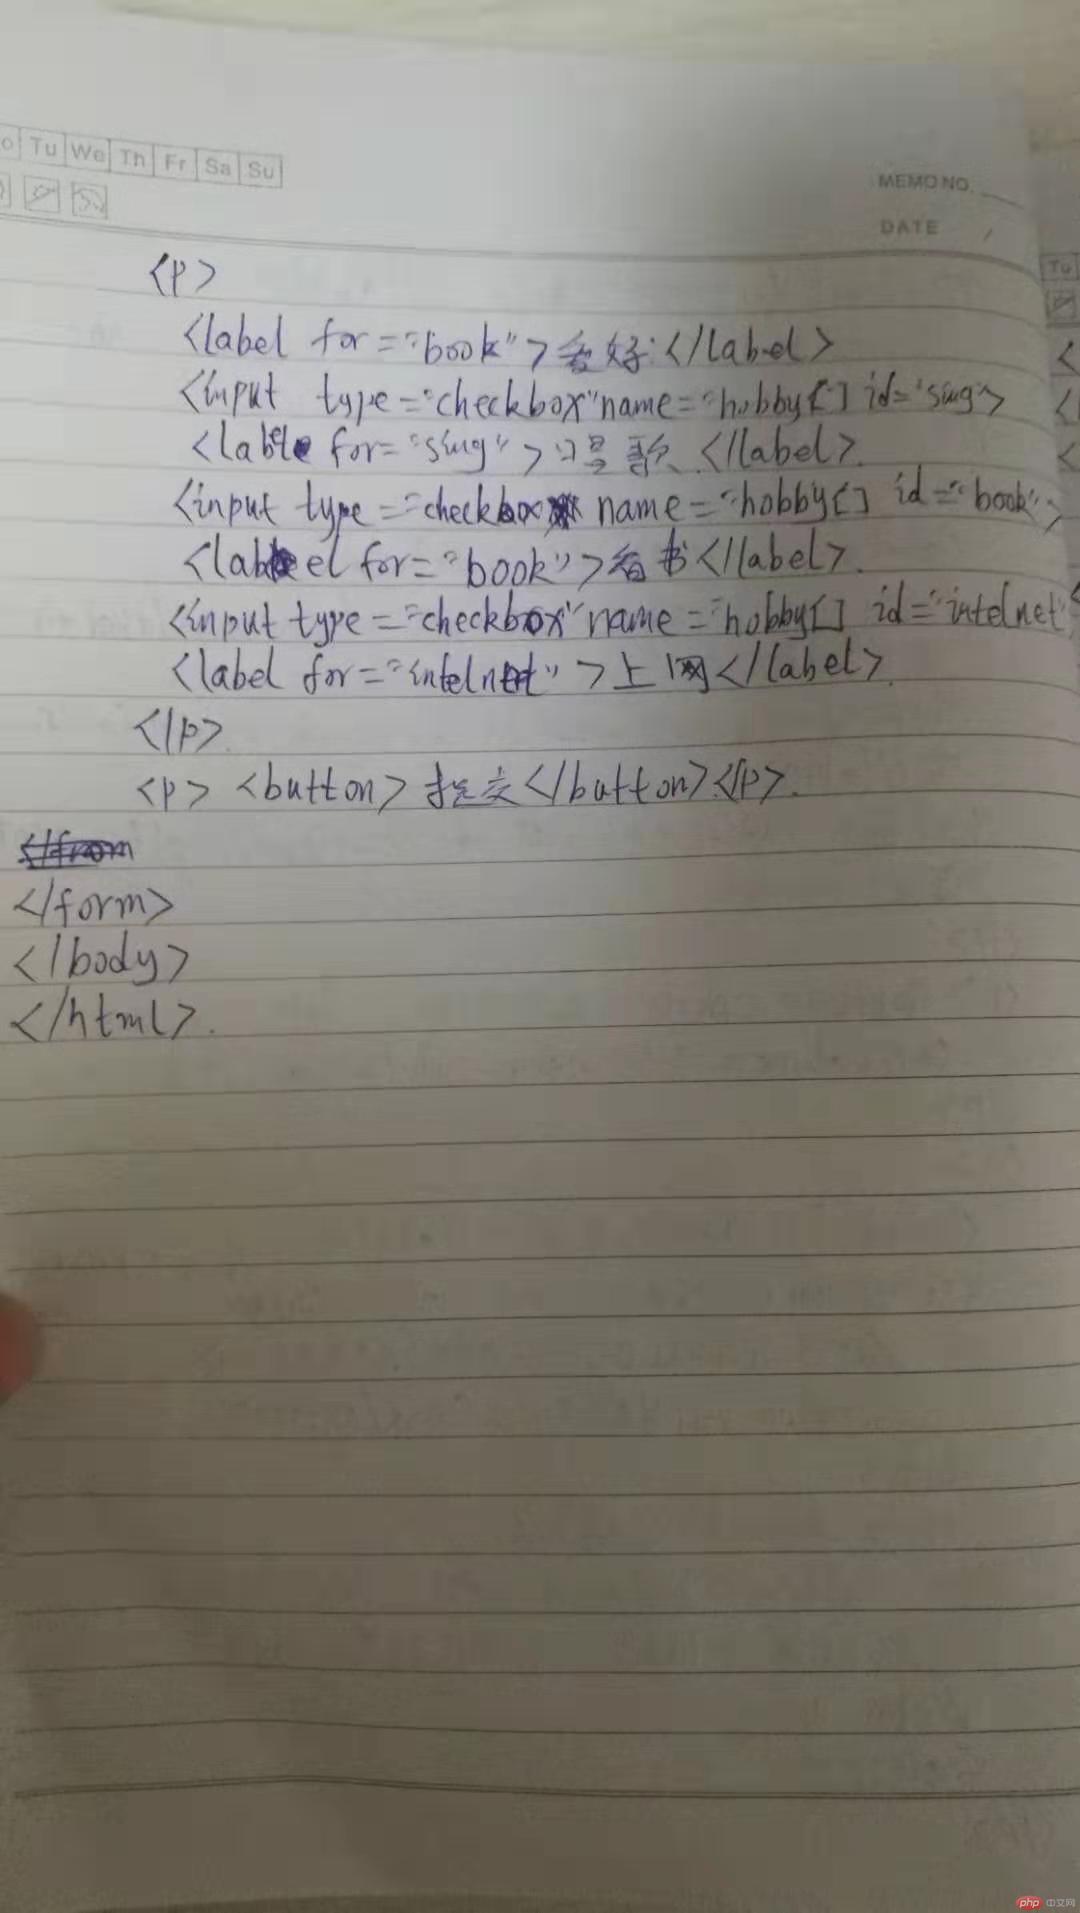 Tu We Th Fr Sa Su
MEMO NO.
DATE /
Tu
<p>
<label for="book">爱好:</label>
<input type="checkbox"name="hobby[] id="sing">
<lable for="sing">唱歌</label>
<input type="checkbox name="hobby[] id="book">
<label for="book">看书</label>
<input type="checkbox"name="hobby[] id="intelnet"
<label for="intelnet">上网</label>
</p>
<p> <button>提交</button></p>
</from
</form>
</body>
</html>
php 中文网